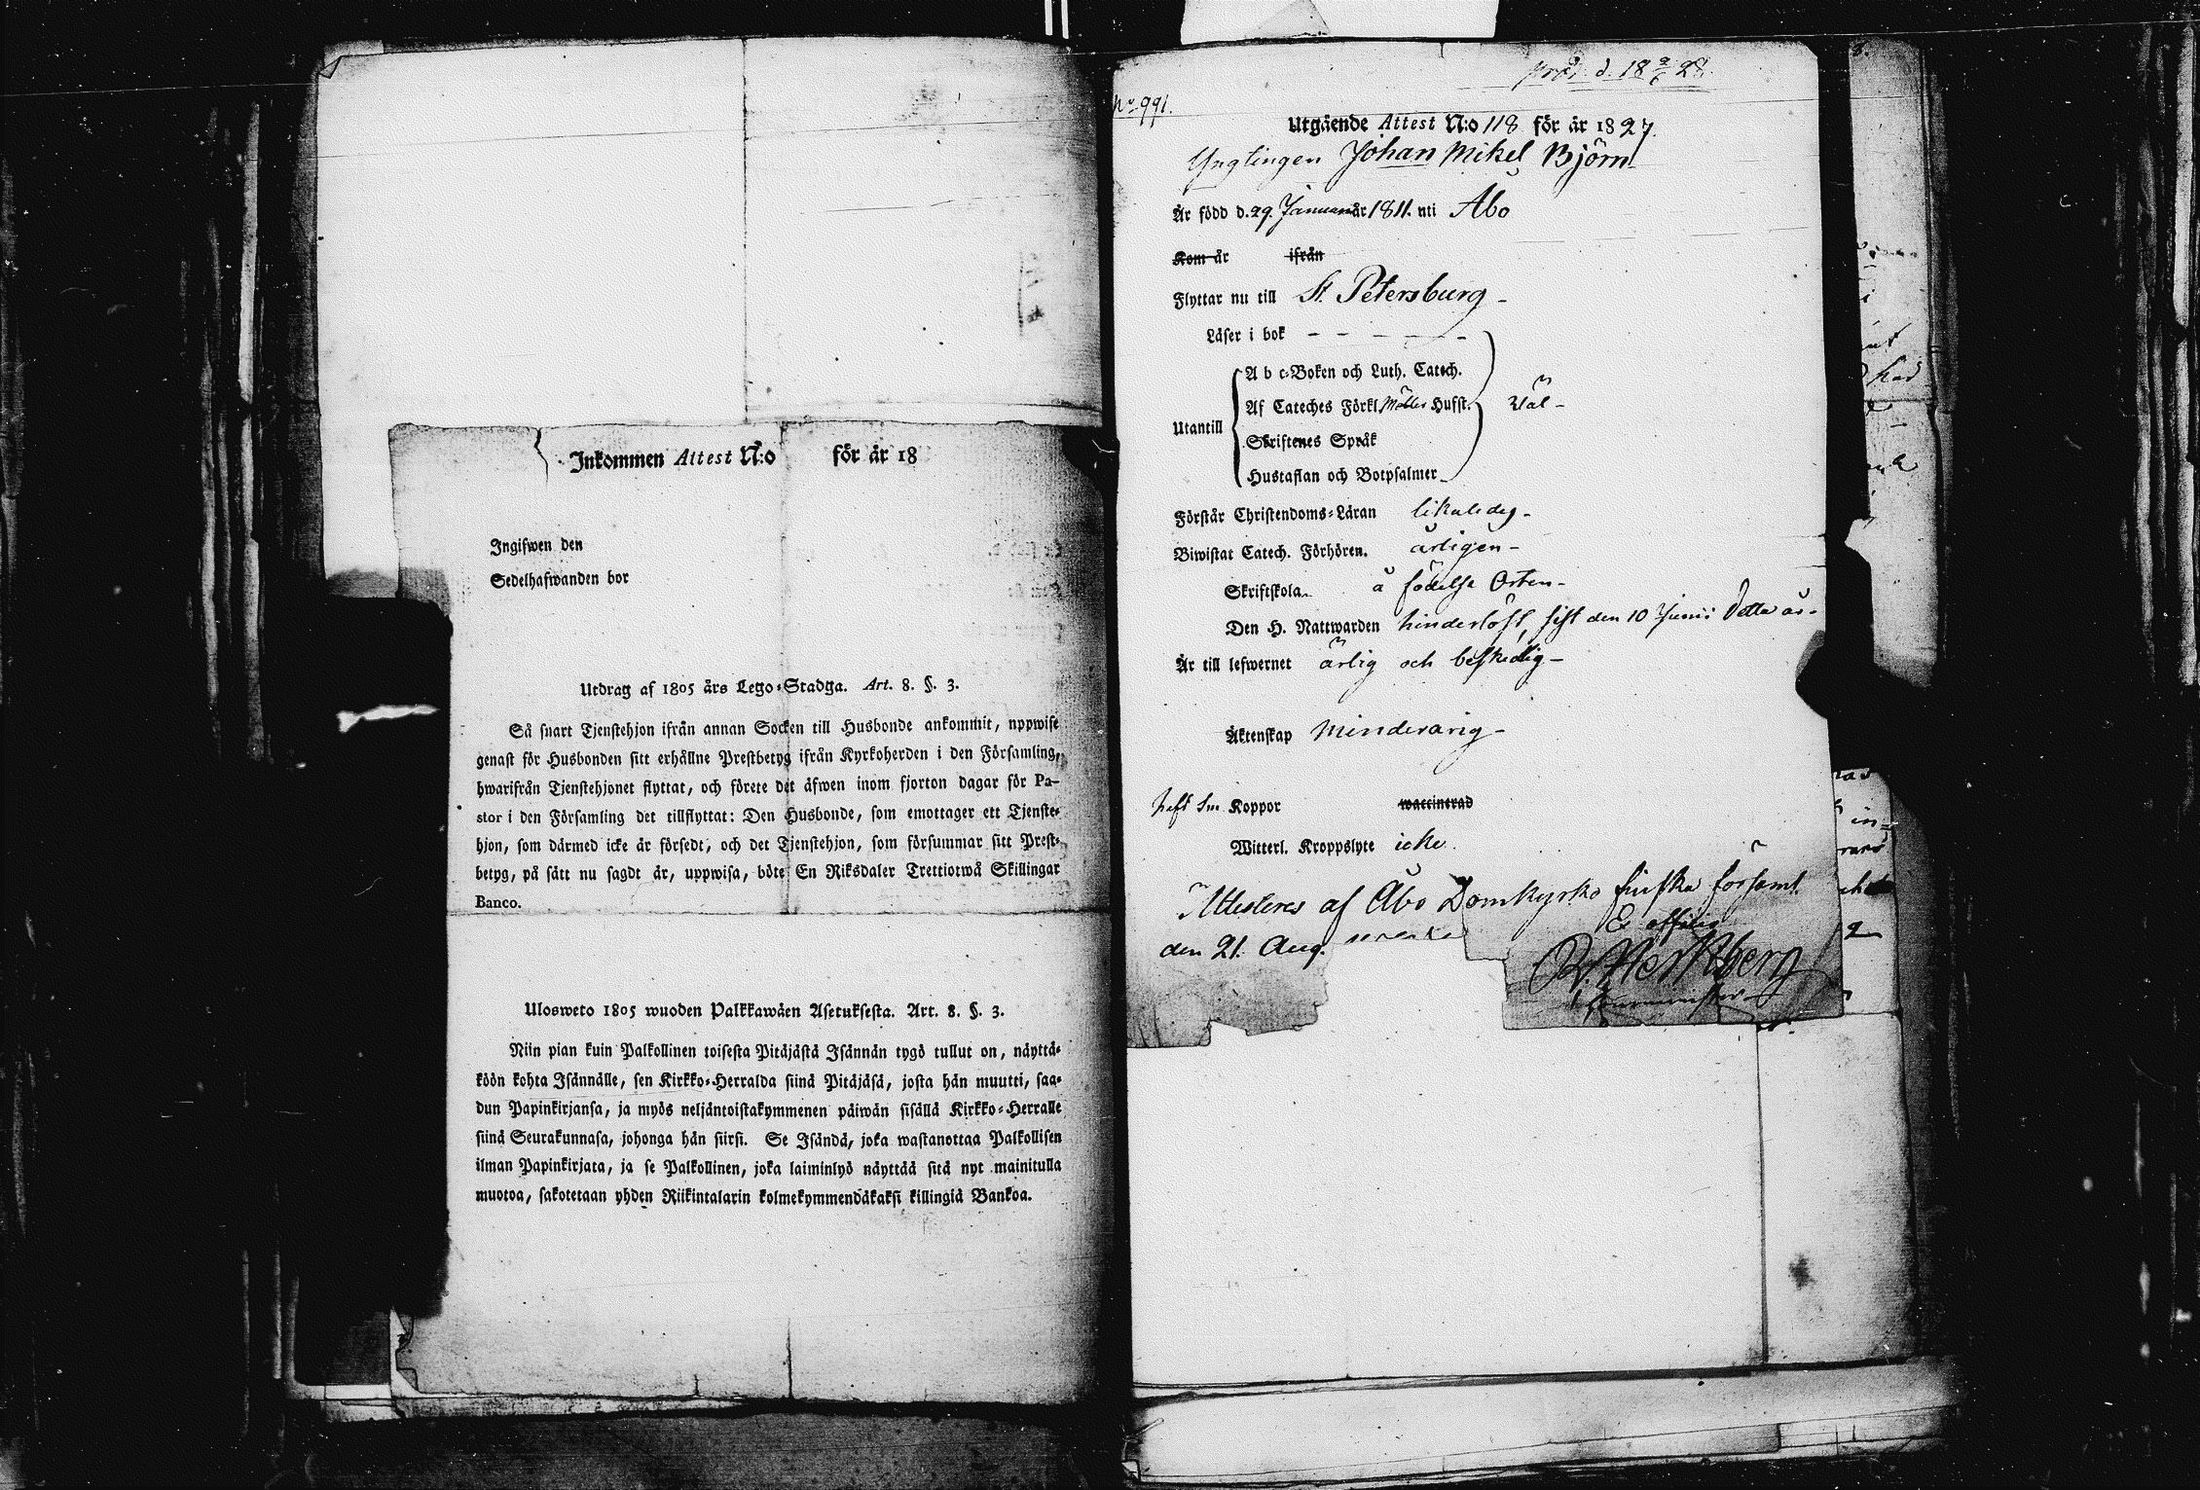 Inkommen Attest N:o för år 18
Ingifwen den
Sedelhafwanden bor
Utdrag af 1805 års Lego-Stadga. Art. 8. §. 3.
Så snart Tjenstehjon ifrån annan Socken till Husbonde ankommit, uppwise
genast för Husbonden sitt erhållne Prestbetyg ifrån Kyrkoherden i den Församling,
hwarifrån Tjenstehjonet flyttat, och förete det äfwen inom fjorton dagar för Pa-
stor i den Församling det tillflyttat: Den Husbonde, som emottager ett Tjenste-
hjon, som därmed icke är försedt, och det Tjenstehjon, som försummar sitt Prest-
betyg, på sätt nu sagdt är, uppwisa, böte En Riksdaler Trettiotwå Skillingar
Banco.
Ulosweto 1805 wuoden Palkkawäen Asetuksesta. Art. 8. §. 3.
Niin pian kuin Palkollinen toisesta Pitäjästä Isännän tygö tullut on, näyttä-
köön kohta Isännälle, sen Kirkko-Herralda siinä Pitäjäsä, josta hän muutti, saa-
dun Papinkirjansa, ja myös neljäntoistakymmenen päiwän sisällä Kirkko-Herralle
siinä Seurakunnasa, johonga hän siirsi. Se Isändä, joka wastanottaa Palkollisen
ilman Papinkirjata, ja se Palkollinen, joka laiminlyö näyttää sitä nyt mainitulla
muotoa, sakotetaan yhden Riikintalarin kolmekymmendäkaksi killingiä Bankoa.
d. 18 2/6 28.
No 991.
Utgående Attest N:o 118 för år 1827.
Ynglingen Johan Mikel Björn
Är född d. 29. Januari år 1811. uti Åbo
Kom år ifrån
Flyttar nu till St. Petersburg -
Läser i bok - - - - -
A b c-Boken och Luth. Catech.
Af Cateches Förkl. Hufst. Väl -
Utantill
Skriftenes Språk
Hustaflan och Botpsalmer
Förstår Christendoms-Läran likaledes -
Biwistat Catech. Förhören. årligen -
Skriftskola. å födelse Orten -
Den H. Nattwarden hinderlöst, sist den 10 Junii detta år -
Är till lefwernet ärlig och beskedlig -
Äktenskap Minderårig -
haft Sm Koppor waccinerad
Witterl. Kroppslyte icke.
Attesteras af Åbo Domkyrko finska församl.
den 21. Aug.
E officio